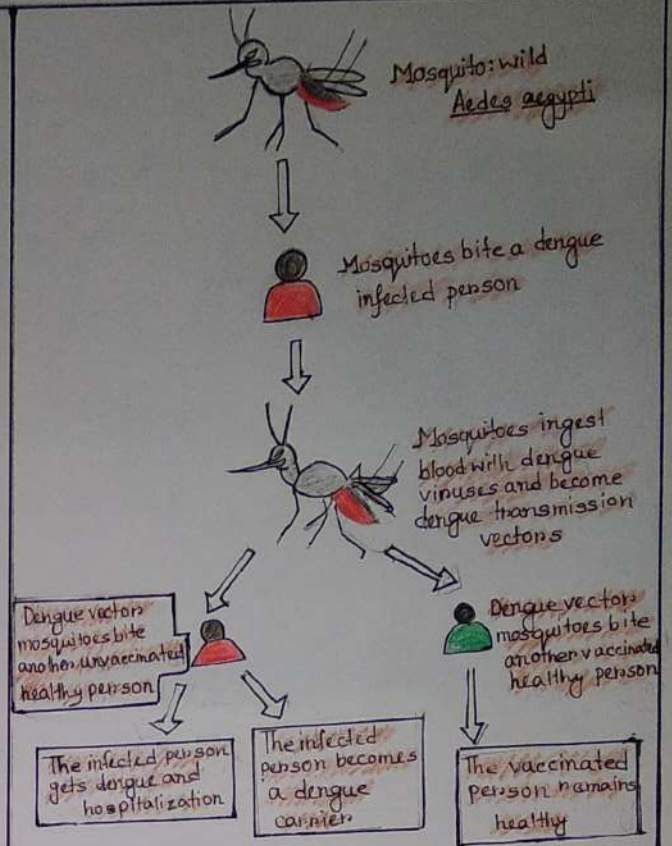 Mosquito: wild
Aedes aegypti
Mosquitoes bite a dengue
infected person
Mosquitoes ingest
blood with dengue
viruses and become
dengue transmission
vectors
Dengue vector
mosquitoes bite
another unvaccinated
healthy person
Dengue vector
mosquitoes bite
another vaccinated
healthy person
The infected person
gets dengue and
hospitalization
The infected
person becomes
a dengue
carrier
The vaccinated
person remains
healthy